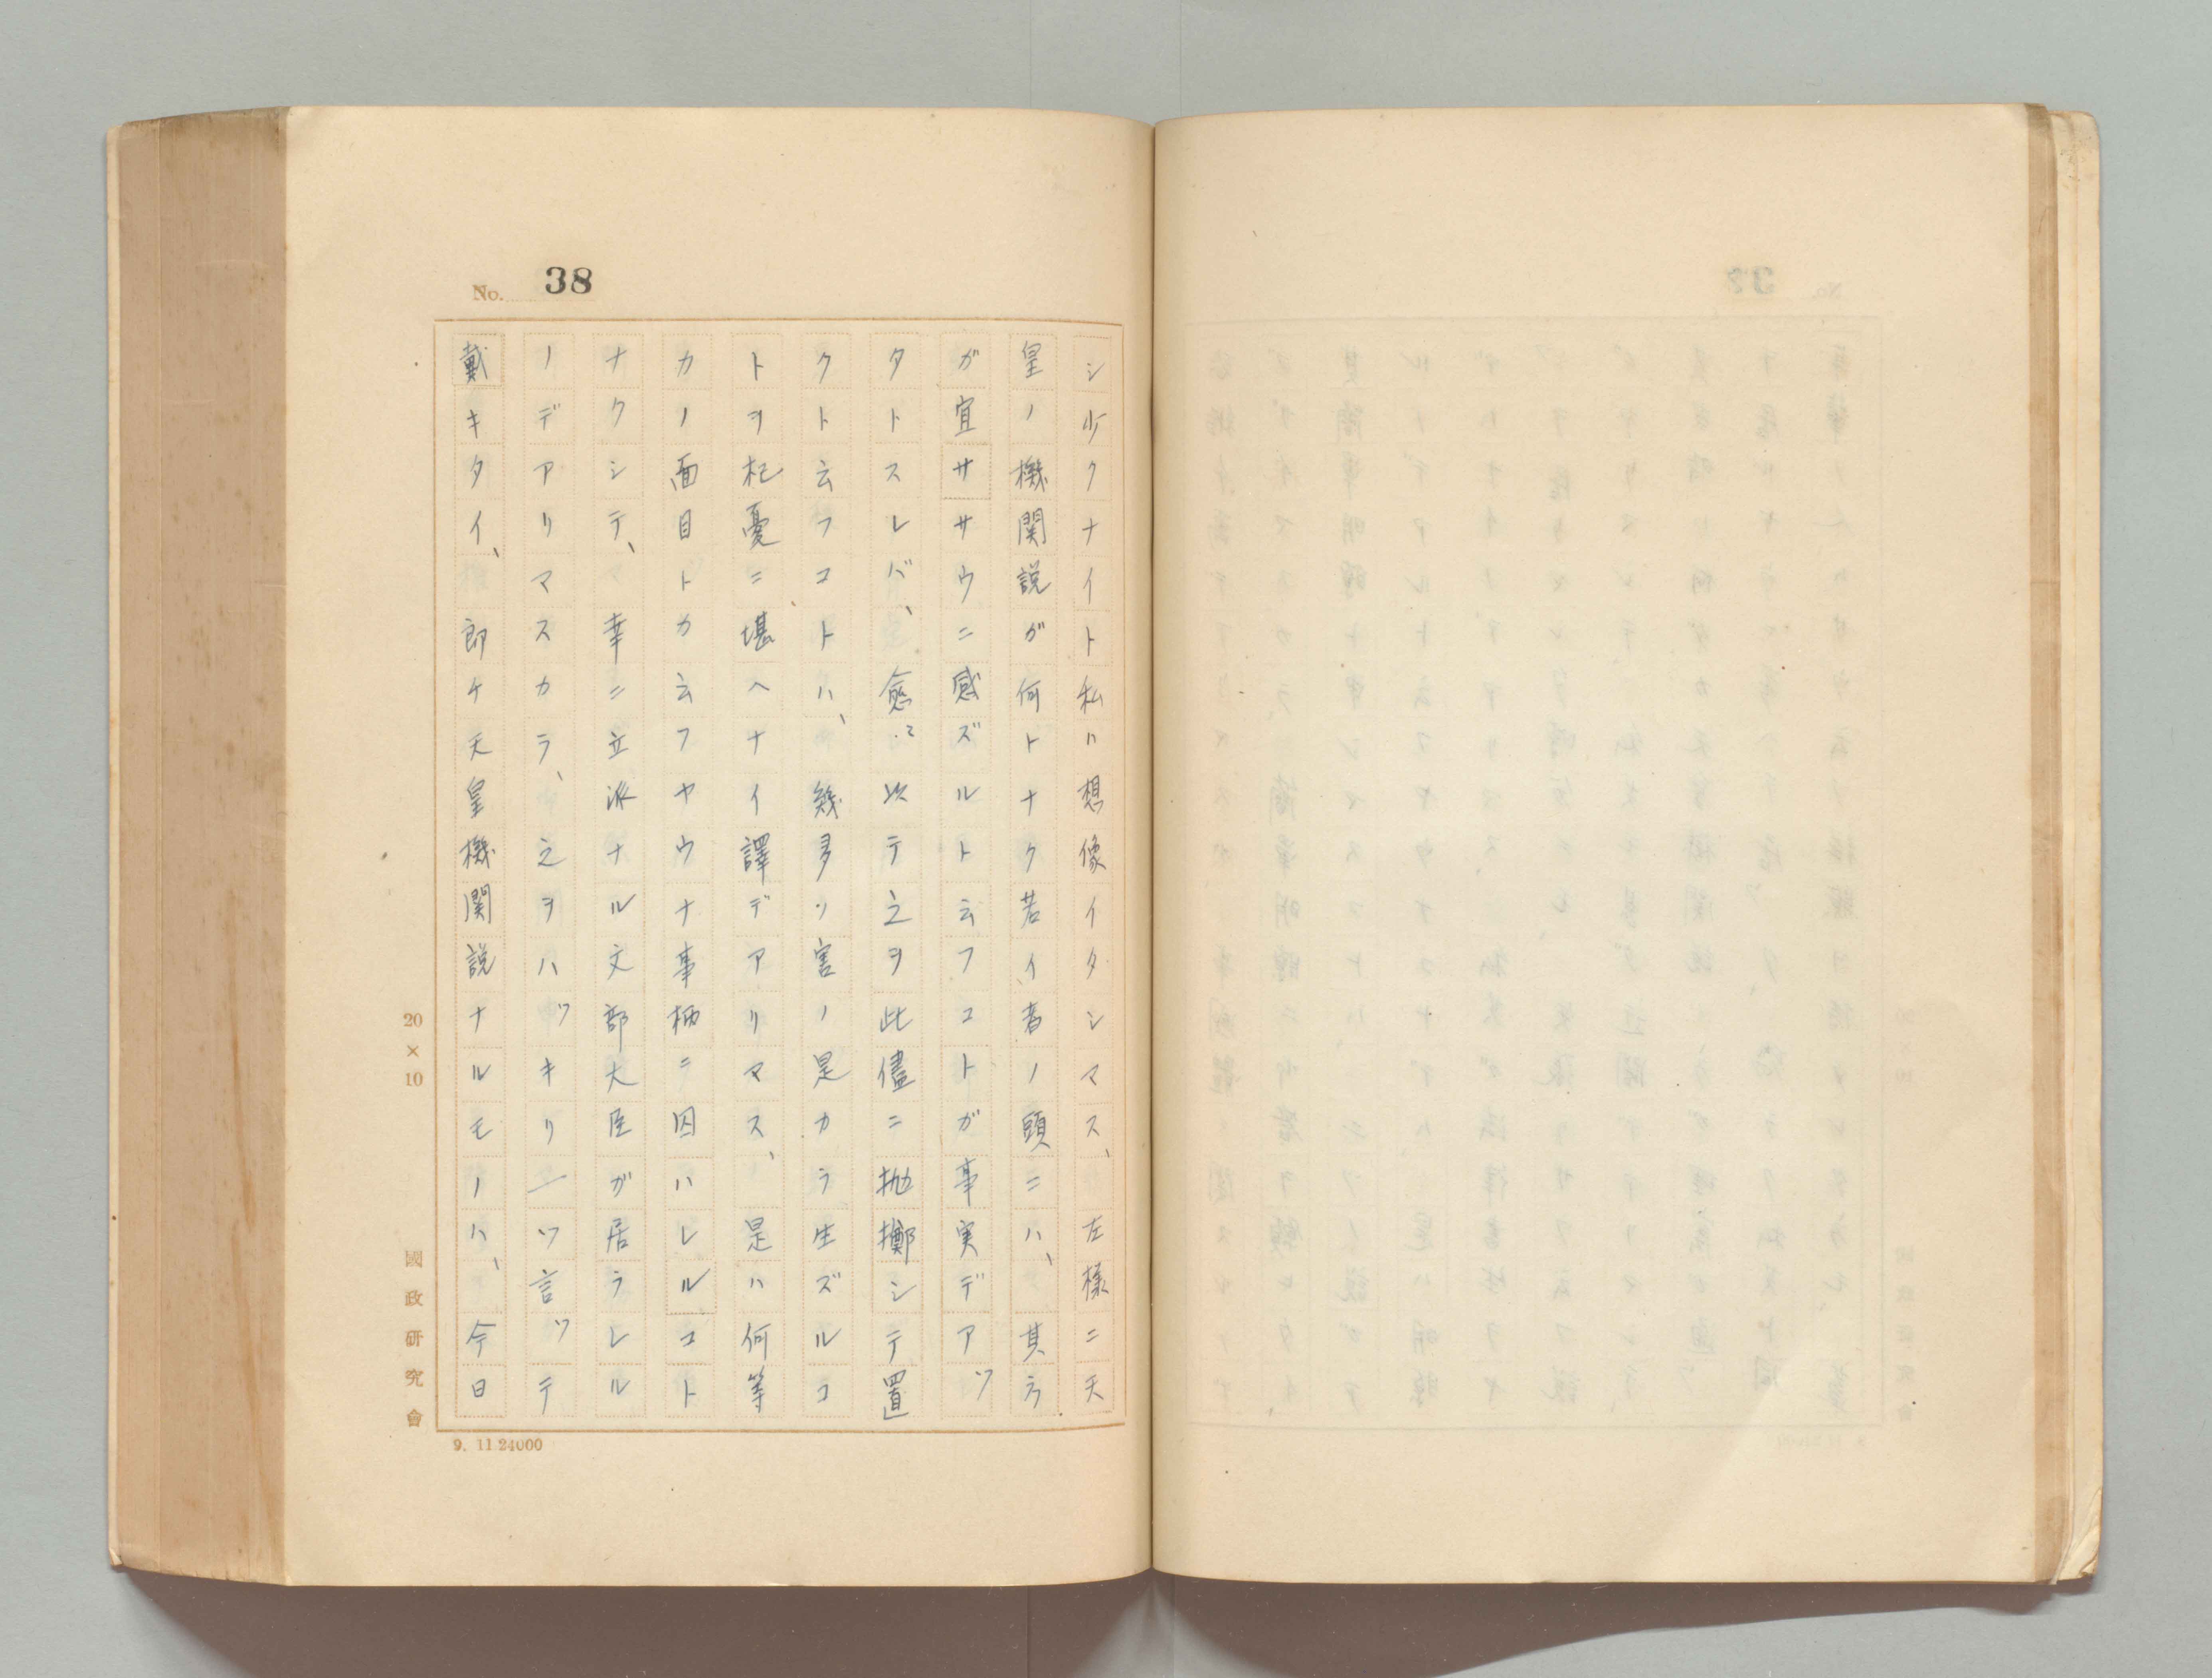 No. 38
シ少クナイト私ハ想像イタシマス、左樣ニ天
皇ノ機関説ガ何トナク若イ者ノ頭ニハ、其ラ
ガ宜ササウニ感ズルト云フコトガ事実デアツ
タトスレバ、愈〻以テ之ヲ此儘ニ抛擲シテ置
クト云フコトハ、幾多ソ害ノ是カラ生ズルコ
トヲ杞憂ニ堪ヘナイ譯デアリマス、是ハ何等
カノ面目トカ云フヤウナ事柄ニ囚ハレルコト
ナクシテ、幸ニ立派ナル文部大臣ガ居ラレル
ノデアリマスカラ、之ヲハツキリ一ツ言ツテ
戴キタイ、郎チ天皇機関説ナルモノハ、今日
20×10
國政研究會
9. 11 24000